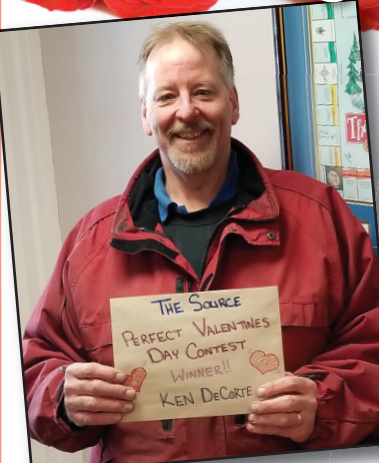 THE SOURCE
PERFECT VALENTINES
DAY CONTEST
WINNER!!
KEN DECORTE